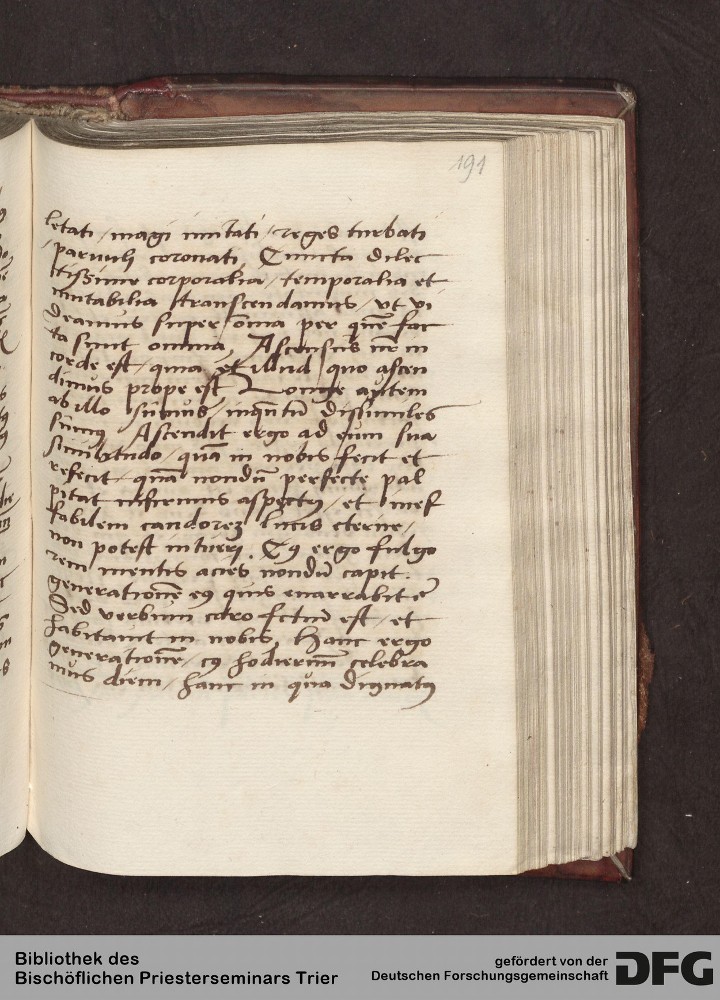 191
letati / magi inuitati / reges turbati
/ paruuli coronati. Cuncta dilec
tissime corporalia / temporalia et
mutabilia transcendamus / ut vi
deamus super oīa per quē fac
ta sunt omnia. Ascensus nr̄ in
corde est / quia et illud quo ascen
dimus prope est Longe autem
ab illo sumus / inquātū dissimiles
sumus Ascendit ergo ad eum sua
similitudo / quā in nobis fecit et
refecit / quā nondū perfecte pal
pitat infirmus aspectꝰ / et inef
fabilem candorem lucis eterne /
non potest intueri. Cꝰ ergo fulgo
rem mentis acies nondū capit.
generationē eꝰ quis enarrabit ē
Sed verbum caro fctum est / et
habitauit in nobis. Hanc ergo
generationē / cꝰ hodiernū celebra
mus diem / hanc in qua dignatꝰ
Bibliothek des
Bischöflichen Priesterseminars Trier
gefördert von der
Deutschen Forschungsgemeinschaft
DFG